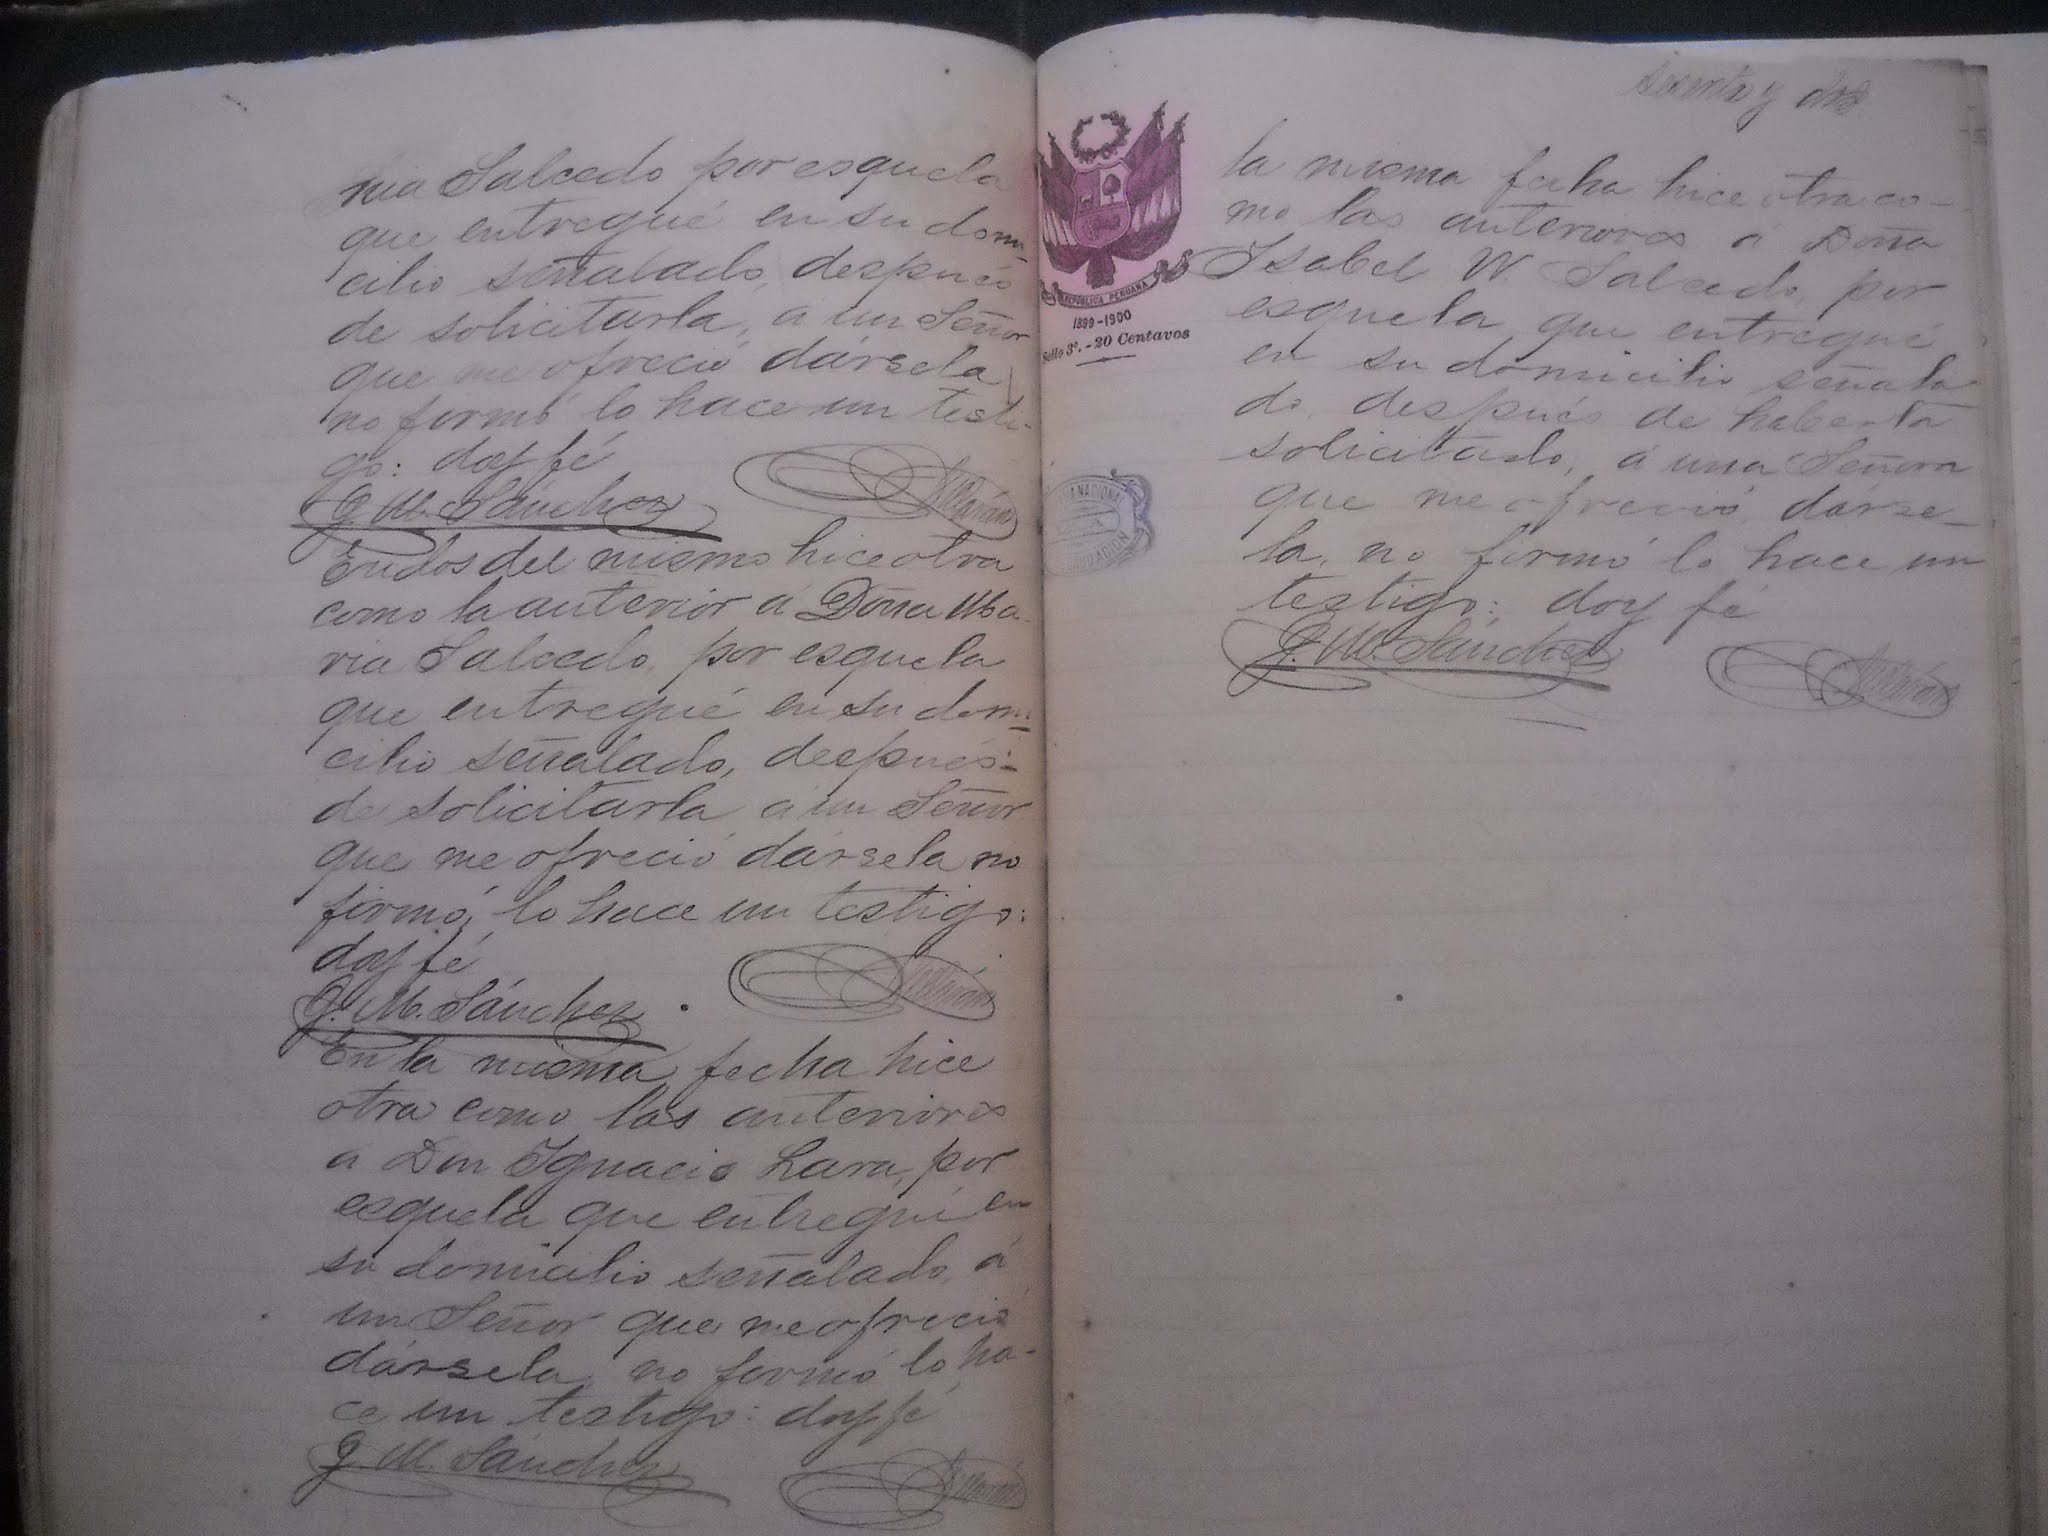 ria Salcedo por esquela
que entregué en su domi
cilio señalado, después
de solicitarla, á un Señor
que me ofreció dársela
no firmó lo hace un testi-
go: doy fé
G. M. Sánchez
En dos del mismo hice otra
como la anterior á Doña Ma
ria Salcedo, por esquela
que entregué en su domi
cilio señalado, después
de solicitarla á un Señor
que me ofreció dársela no
firmó, lo hace un testigo:
doy fé
G. M. Sánchez
En la misma fecha hice
otra como las anteriores
a Don Ignacio Lara, por
esquela que entregué en
su domicilio señalado, á
un Señor que me ofreció
dársela, no firmó lo ha-
ce un testigo: doy fé
G. M. Sánchez
sesenta y dos
REPÚBLICA PERUANA
1899-1900
Sello 3º. - 20 Centavos
NACIONAL
la misma fecha hice otra co-
mo las anteriores á Doña
Isabel W. Salcedo, por
esquela que entregué
en su domicilio señala
do, después de haberla
solicitado, á una Señora
que me ofreció dárse-
la, no firmó lo hace un
testigo: doy fé
G. M. Sánchez